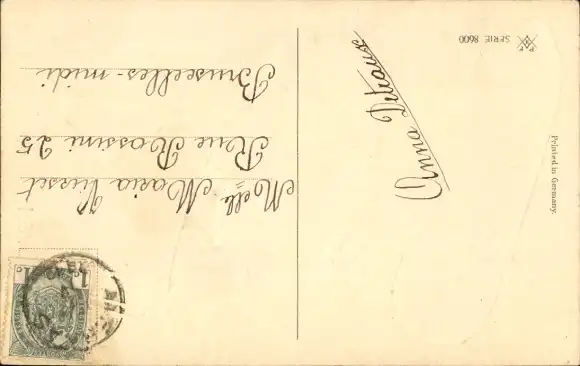 Melle Maria Visset
Rue Rossini 25
Bruxelles-midi
Anna Detraux
SERIE 8600
Printed in Germany.
1c 1c